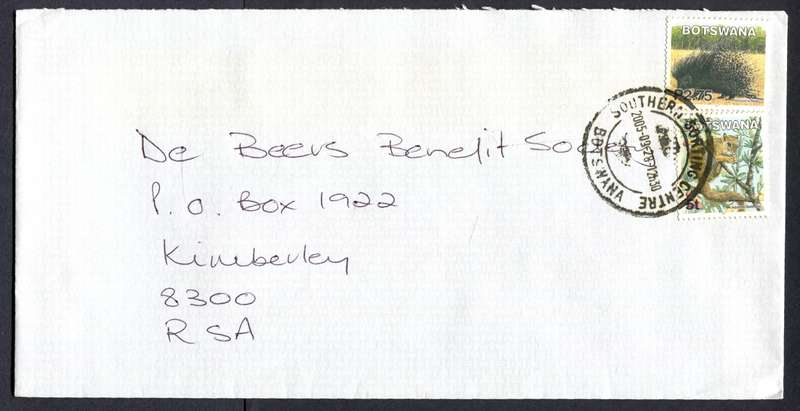 BOTSWANA
P2.75
BOTSWANA
5t
SOUTHERN SORTING CENTRE
2005-09-28
BOTSWANA
De Beers Benefit Society
P.O. Box 1922
Kimberley
8300
RSA